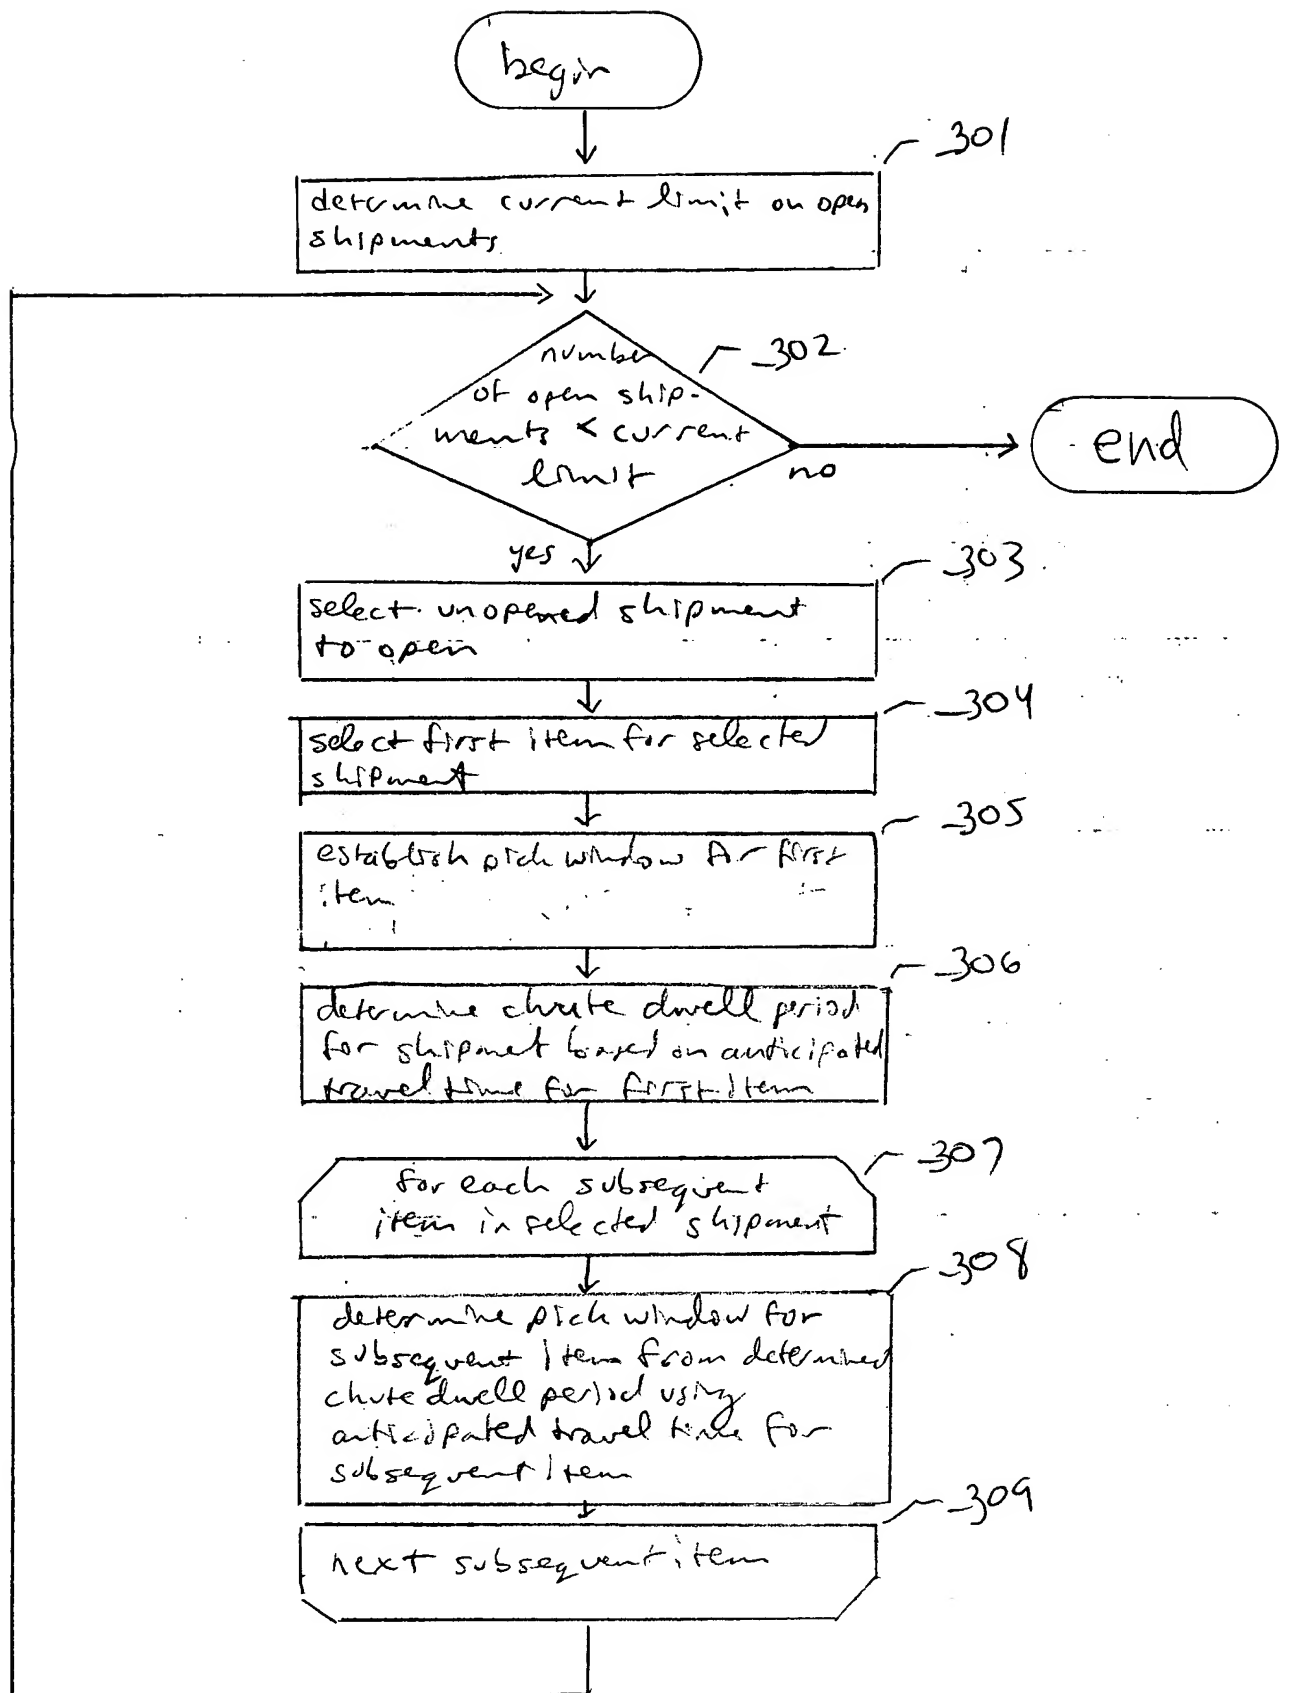 begin
301
determine current limit on open
shipments
302
number
of open ship-
ments < current
limit
no
end
yes
303
select unopened shipment
to open
304
select first item for selected
shipment
305
establish pick window for first
item
306
determine chute dwell period
for shipmet based on anticipated
travel time for first item
307
for each subsequent
item in selected shipment
308
determine pick window for
subsequent item from determined
chute dwell period using
anticipated travel time for
subsequent item
309
next subsequent item